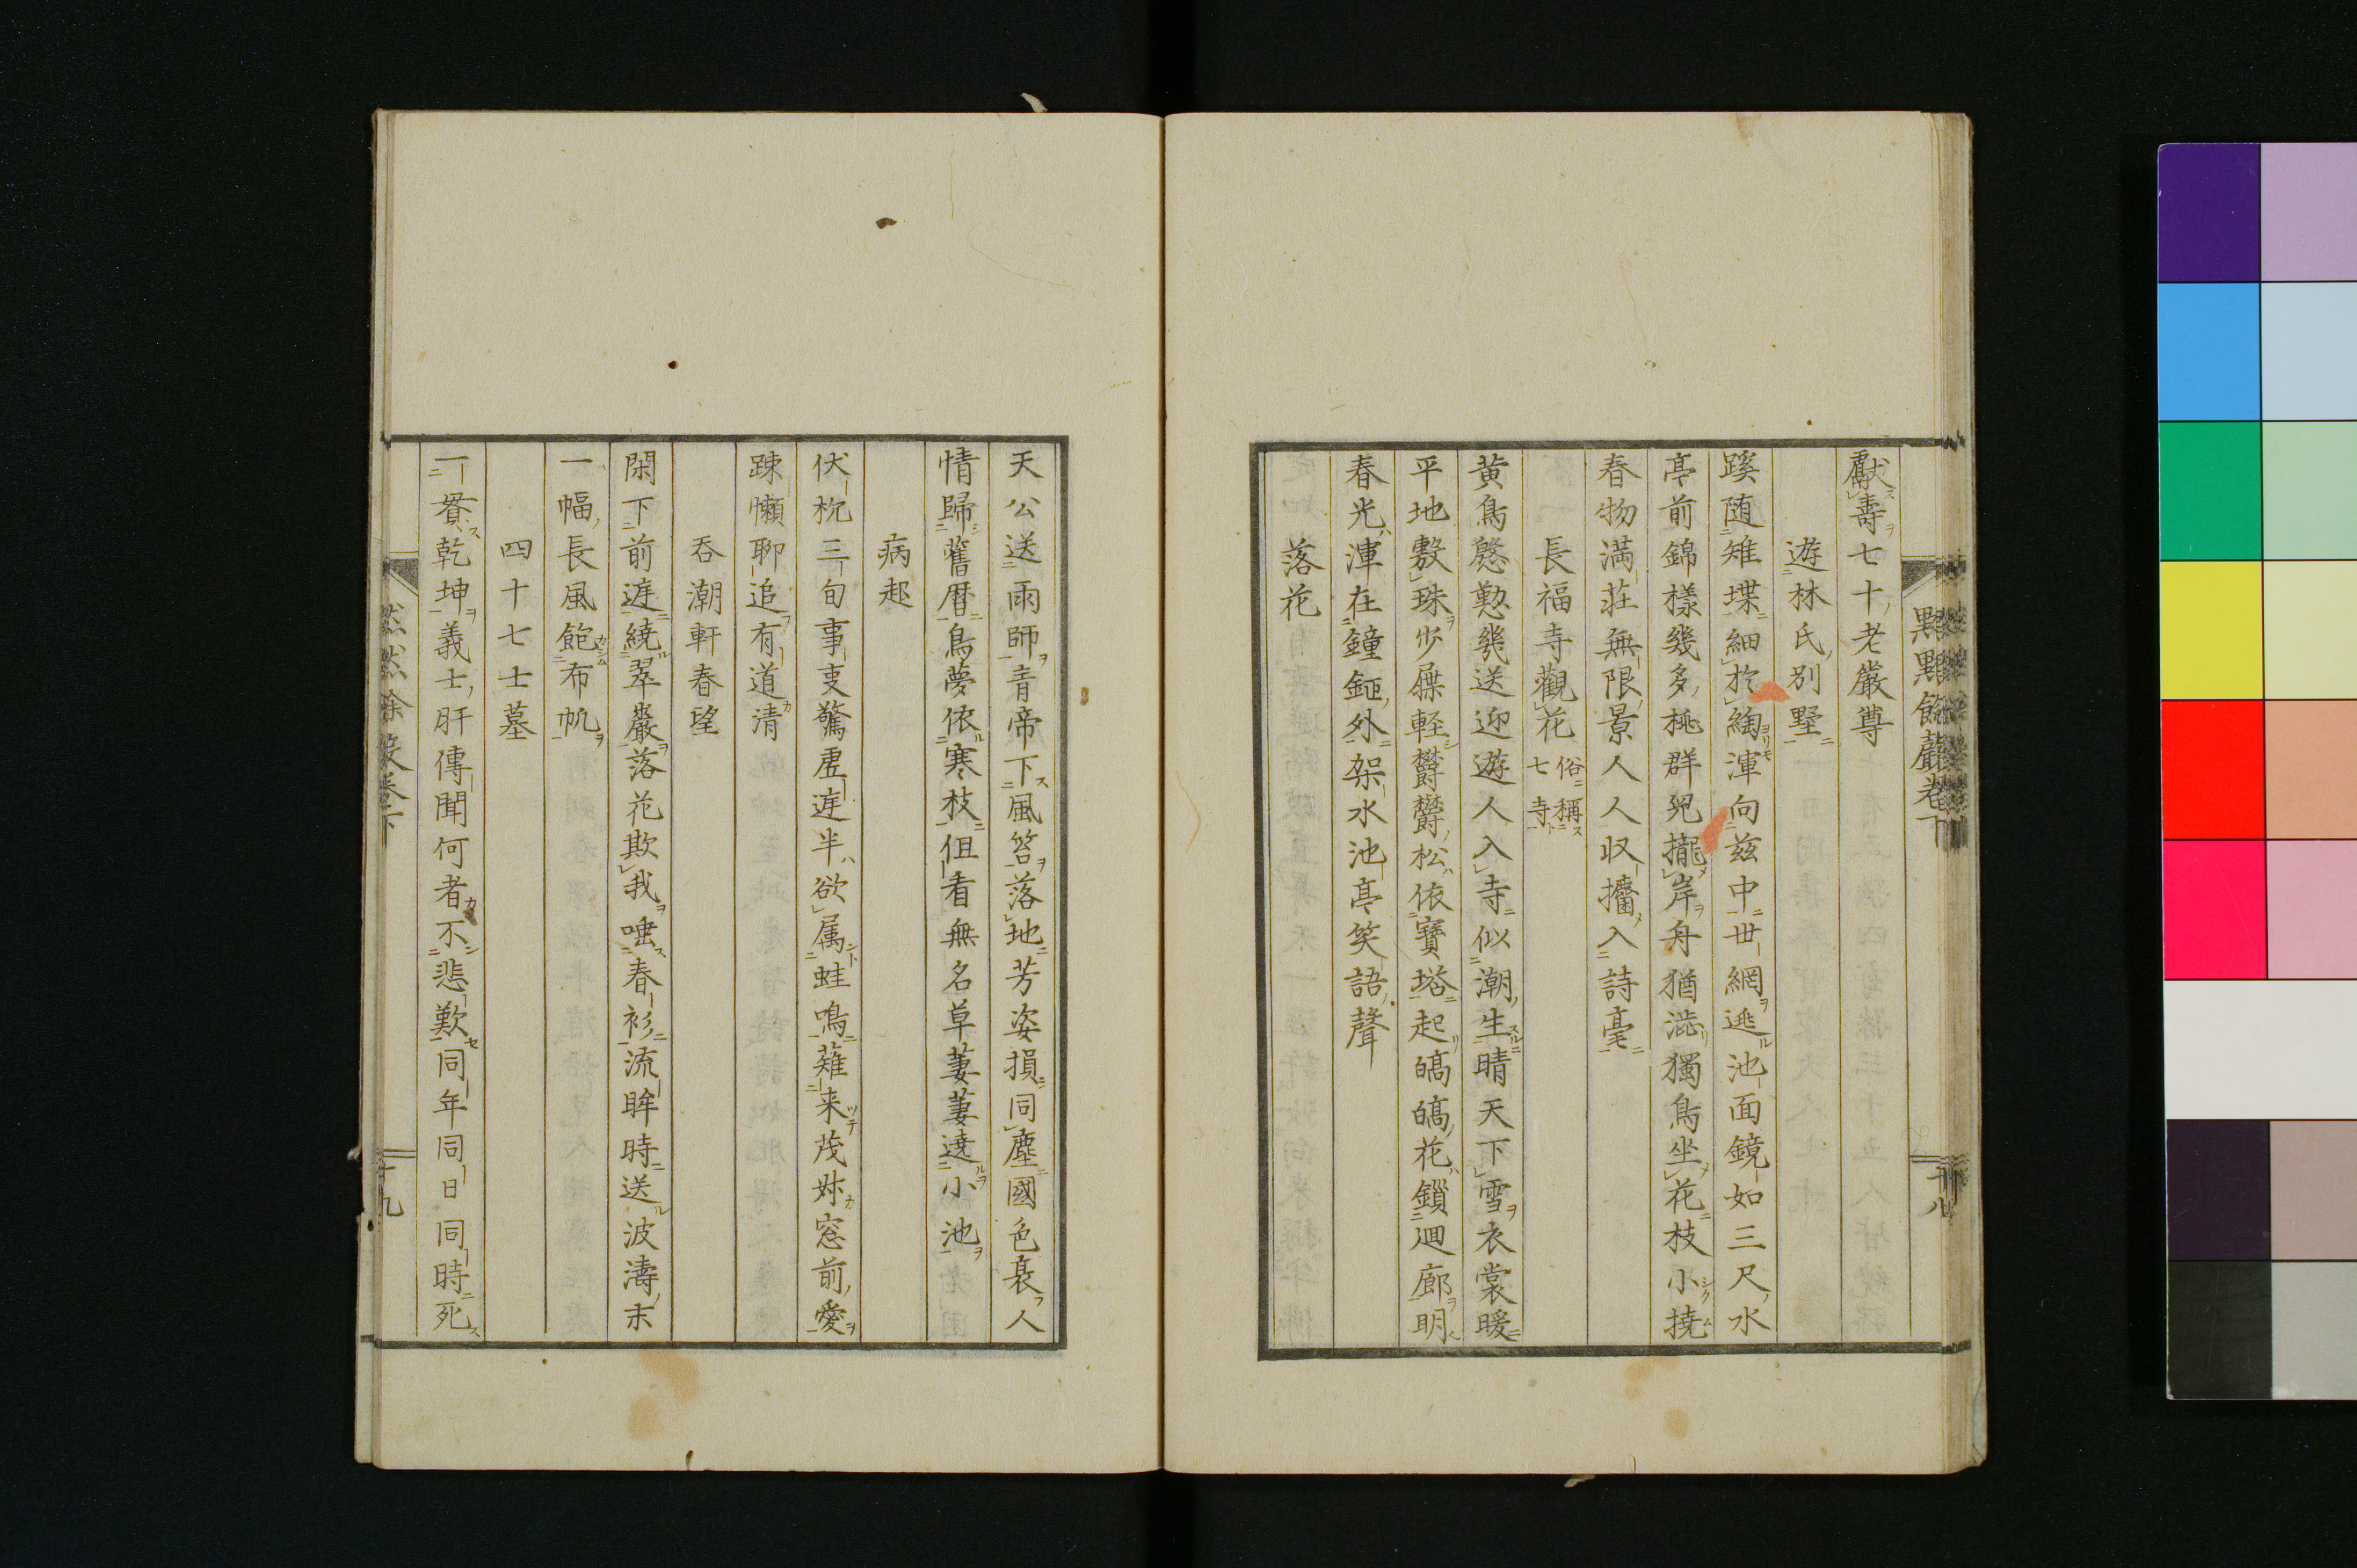 獻壽七十老嚴尊
遊林氏別墅
蹊随雉堞細於綯渾向玆中世網逃池面鏡如三尺水
亭前錦樣幾多桃群兒攏岸舟猶澁獨鳥坐花枝小撓
春物満荘無限景人人収攟入詩毫
長福寺觀花 俗稱七寺
黄鳥慇懃幾送迎遊人入寺似潮生晴天下雪衣裳暖
平地敷珠歩屧軽欝欝松依寶塔起皜皜花鎖廻廊明
春光渾在鐘鉦外架水池亭笑語聲
落花
天公送雨師青帝下風笞落地芳姿損同塵國色衰人
情歸舊暦鳥夢依寒枝但看無名草萋萋遶小池
病起
伏枕三旬事叓驚虚庭半欲属蛙鳴薙来茂草窓前愛
踈懶聊追有道清
呑潮軒春望
閑下前庭繞翠巖落花欺我唾春衫流眸時送波濤末
一幅長風飽布帆
四十七士墓
一賚乾坤義士肝傳聞何者不悲歎同年同日同時死
巻下
十八
十九